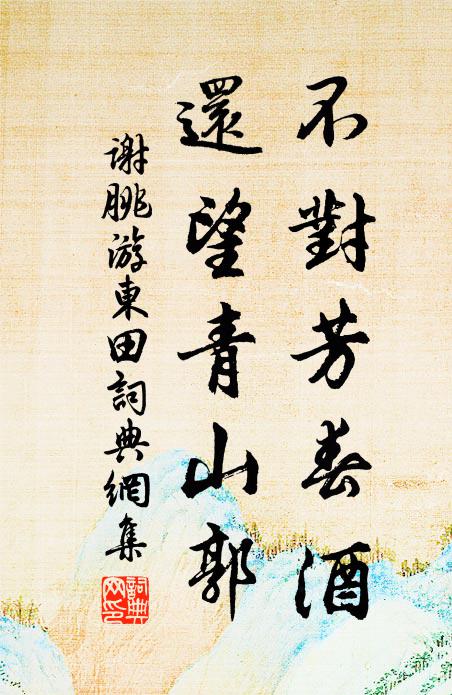 不對芳春酒
還望青山郭
謝朓游東田詞典網集
詞典